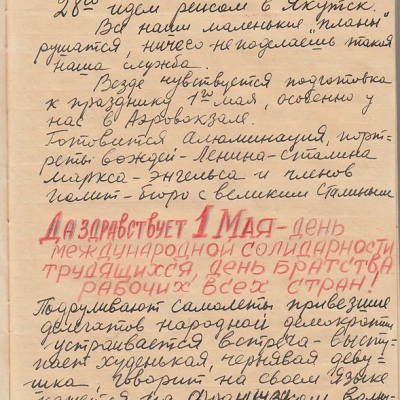 28го идем рейсом в Якутск.
Все наши маленькие "планы"
рушатся, ничего неподелаешь такая
наша служба.
Везде чувствуется подготовка
к празднику 1го мая, особенно у
нас в Аэровокзале.
Готовится Алюминация, порт-
реты вождей-Ленина-Сталина
маркса-Энгельса и членов
полит-бюро с великим Сталиным
Да здравствует 1 Мая-день
международной солидарности
трудящихся, день братства
рабочих всех стран!
Подруливают самолеты привезшие
делигатов народной демократии
устраивается встреча-высту-
пает худенькая, чернявая деву-
шка, говорит на своем языке